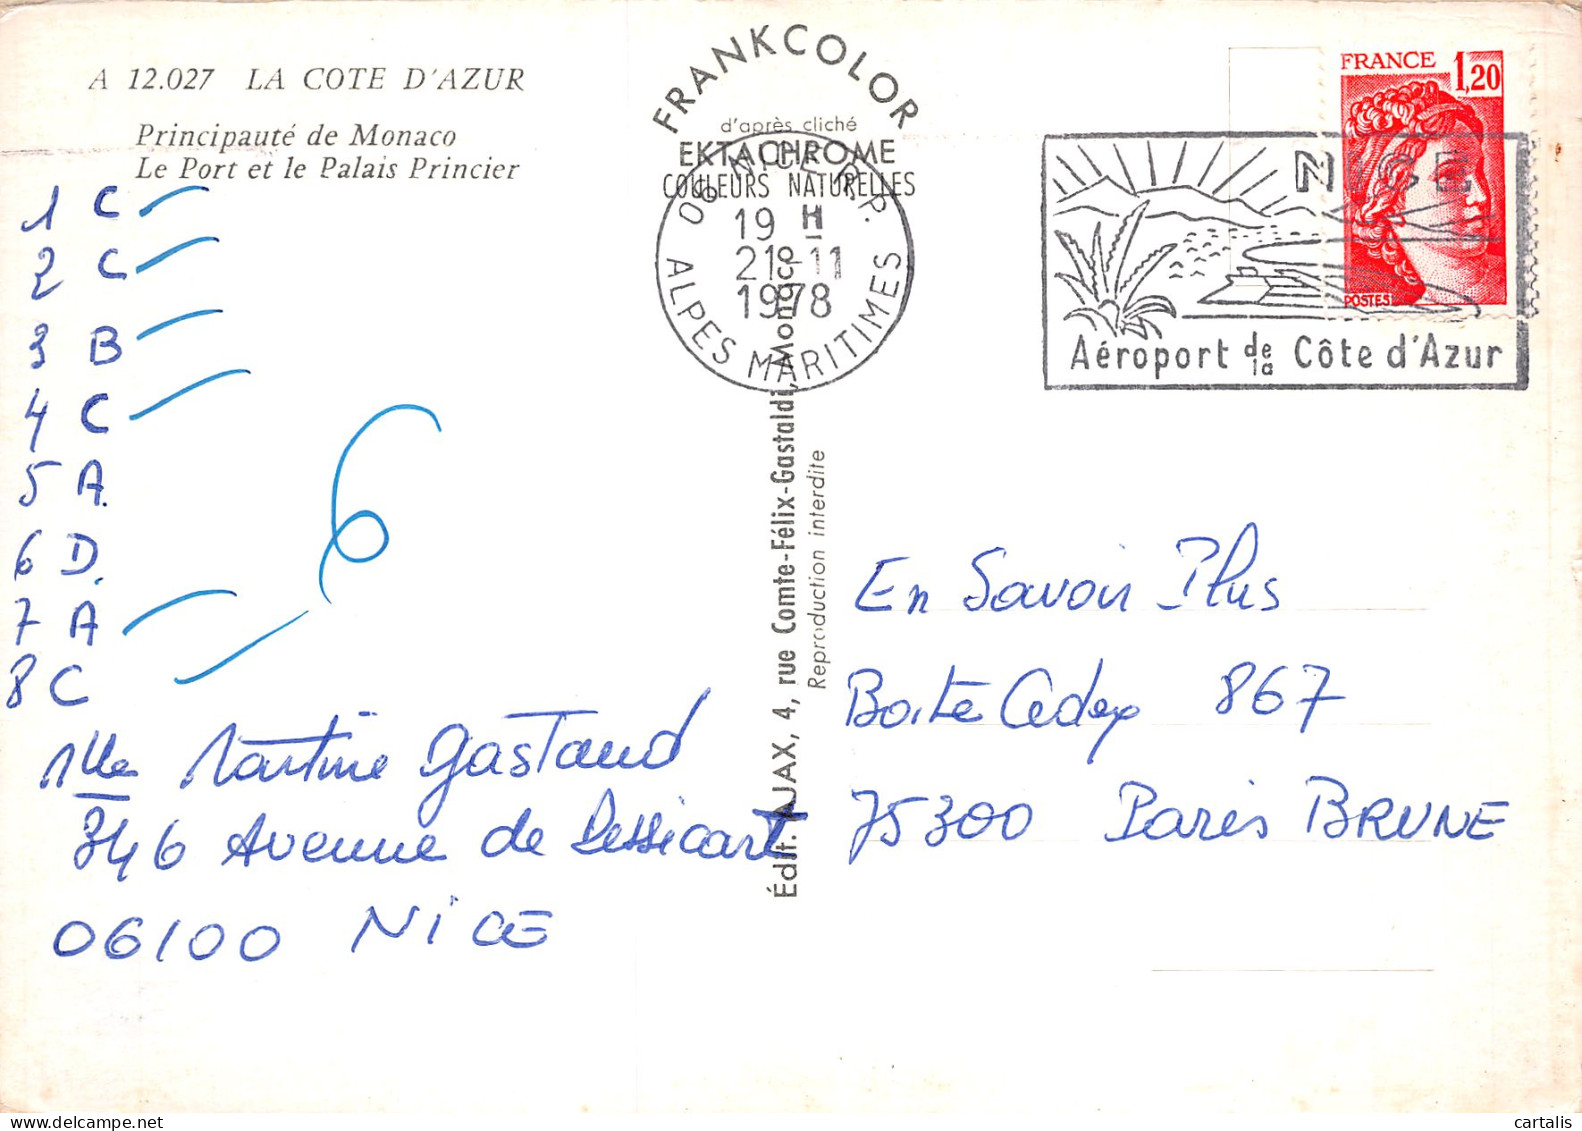 A 12.027 LA COTE D'AZUR
Principauté de Monaco
Le Port et le Palais Princier
1 C
2 C
3 B
4 C
5 A.
6 D.
7 A
8 C
6
Mlle Martine Gastaud
346 Avenue de Pessicart
06100 NICE
FRANKCOLOR
d'après cliché
EKTACHROME
COULEURS NATURELLES
06 NICE R.P.
19 H
21-11
1978
ALPES MARITIMES
Édit. AJAX, 4, rue Comte-Félix-Gastaldi, Monaco
Reproduction interdite
FRANCE
1,20
POSTES
NICE
Aéroport de la Côte d'Azur
En Savoir Plus
Boite Cedex 867
75300 Paris BRUNE
cartalis
delcampe.net